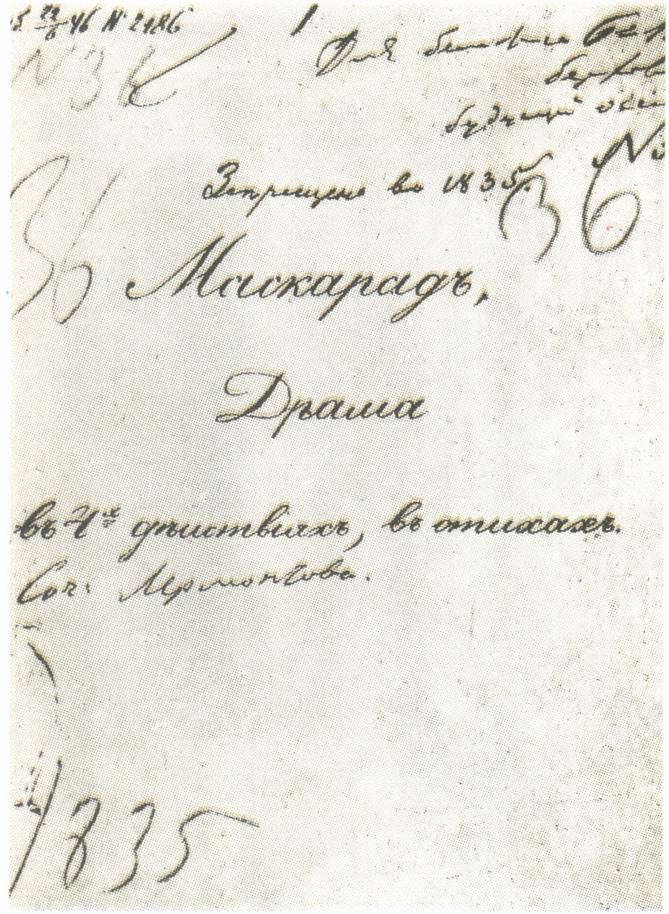 № 2186
Для
будущий
Запрещена въ 1835
36
36
Маскарадъ,
Драма
въ 4х дѣйствіяхъ, въ стихахъ.
Соч: Лермонтова.
1835